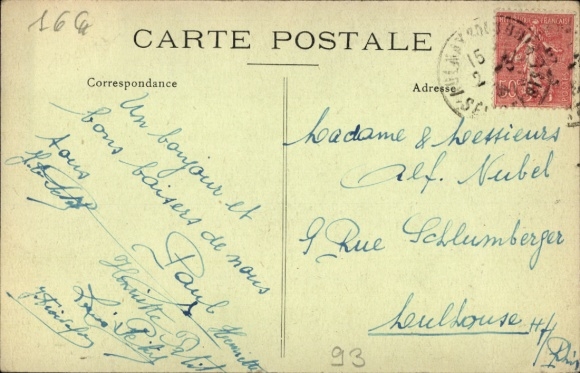 16 G
CARTE POSTALE
Correspondance
Adresse
Un bonjour et
bons baisers de nous
tous
Paul
Henriette
Henriette Petit
Madame & Messieurs
Alf. Nubel
9 Rue Schlumberger
Mulhouse H/
Rhin
93
15
50